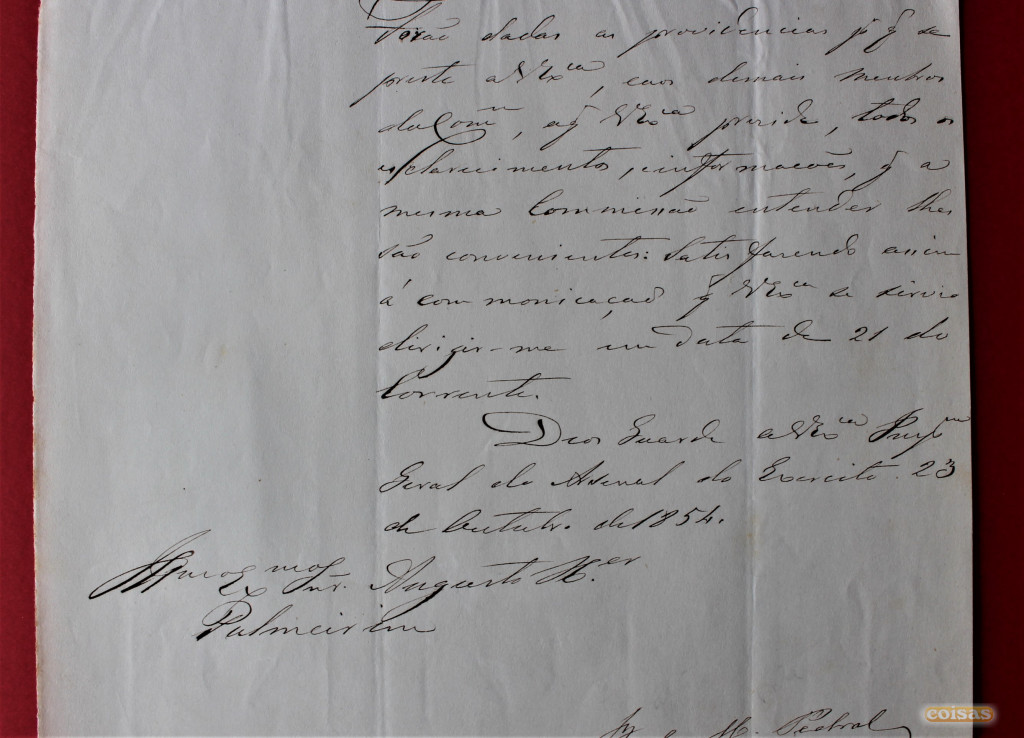 Serão dadas as providencias pª q̃ se
preste a VExcia, e aos demais membros
da Comm, a q̃ VExcia preside, todos os
esclarecimentos, e informacões, q̃ a
mesma Commissão entender lhes
são convenientes: Satisfazendo assim
á communicaçaõ q̃ VExcia se servio
dirigir-me em data de 21 do
Corrente.
Deos Guarde a VExcia
Geral do Arsenal do Exercito. 23
de Outubr. de 1854.
Snr. Augusto Xer
Palmeirim
coisas